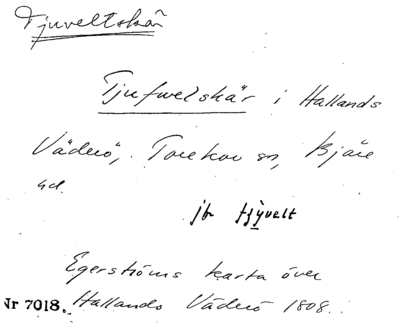 Tjuveltskär
Tjufwelskär i Hallands
Väderö, Torekov sn, Bjäre
hd.
jfr tjyvelt
Egerströms karta över
Nr 7018. Hallands Väderö 1808.